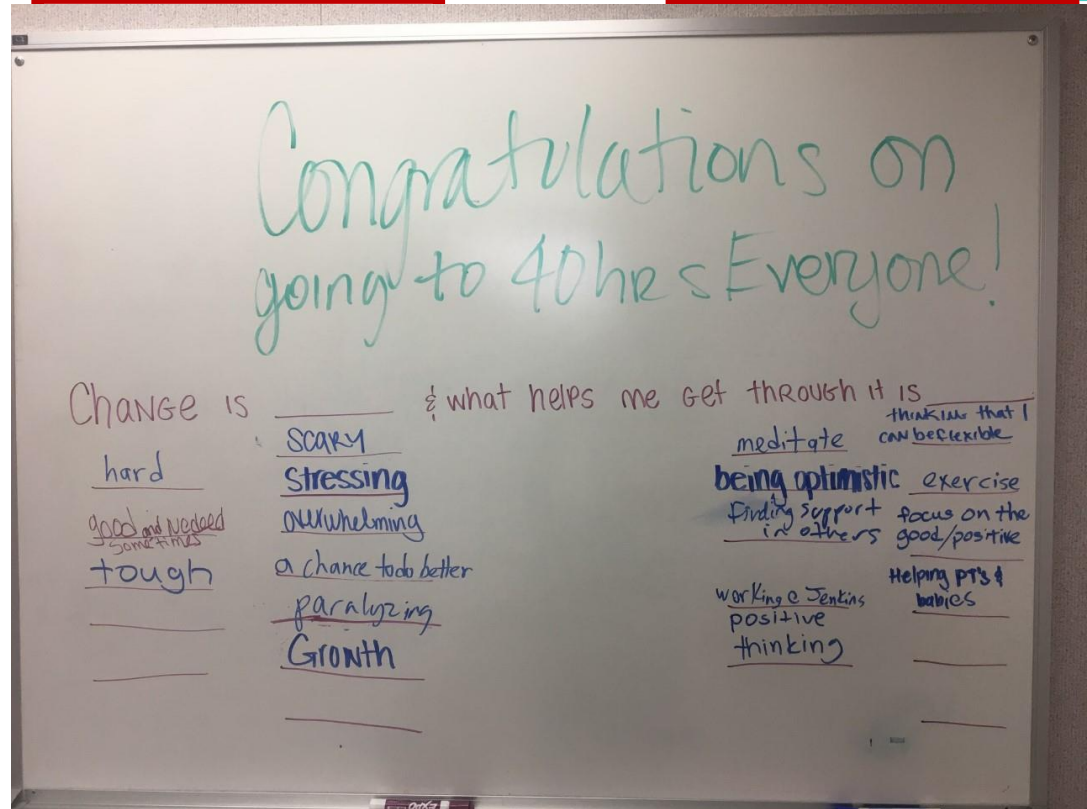 Congratulations on
going to 40 hrs Everyone!
Change is ______ & what helps me get through it is ______
hard
good and Needed
sometimes
tough
scary
stressing
overwhelming
a chance to do better
paralyzing
Growth
meditate
being optimistic
finding support
in others
working @ Jenkins
positive
thinking
thinking that I
can be flexible
exercise
focus on the
good/positive
Helping PT's &
babies
Expo